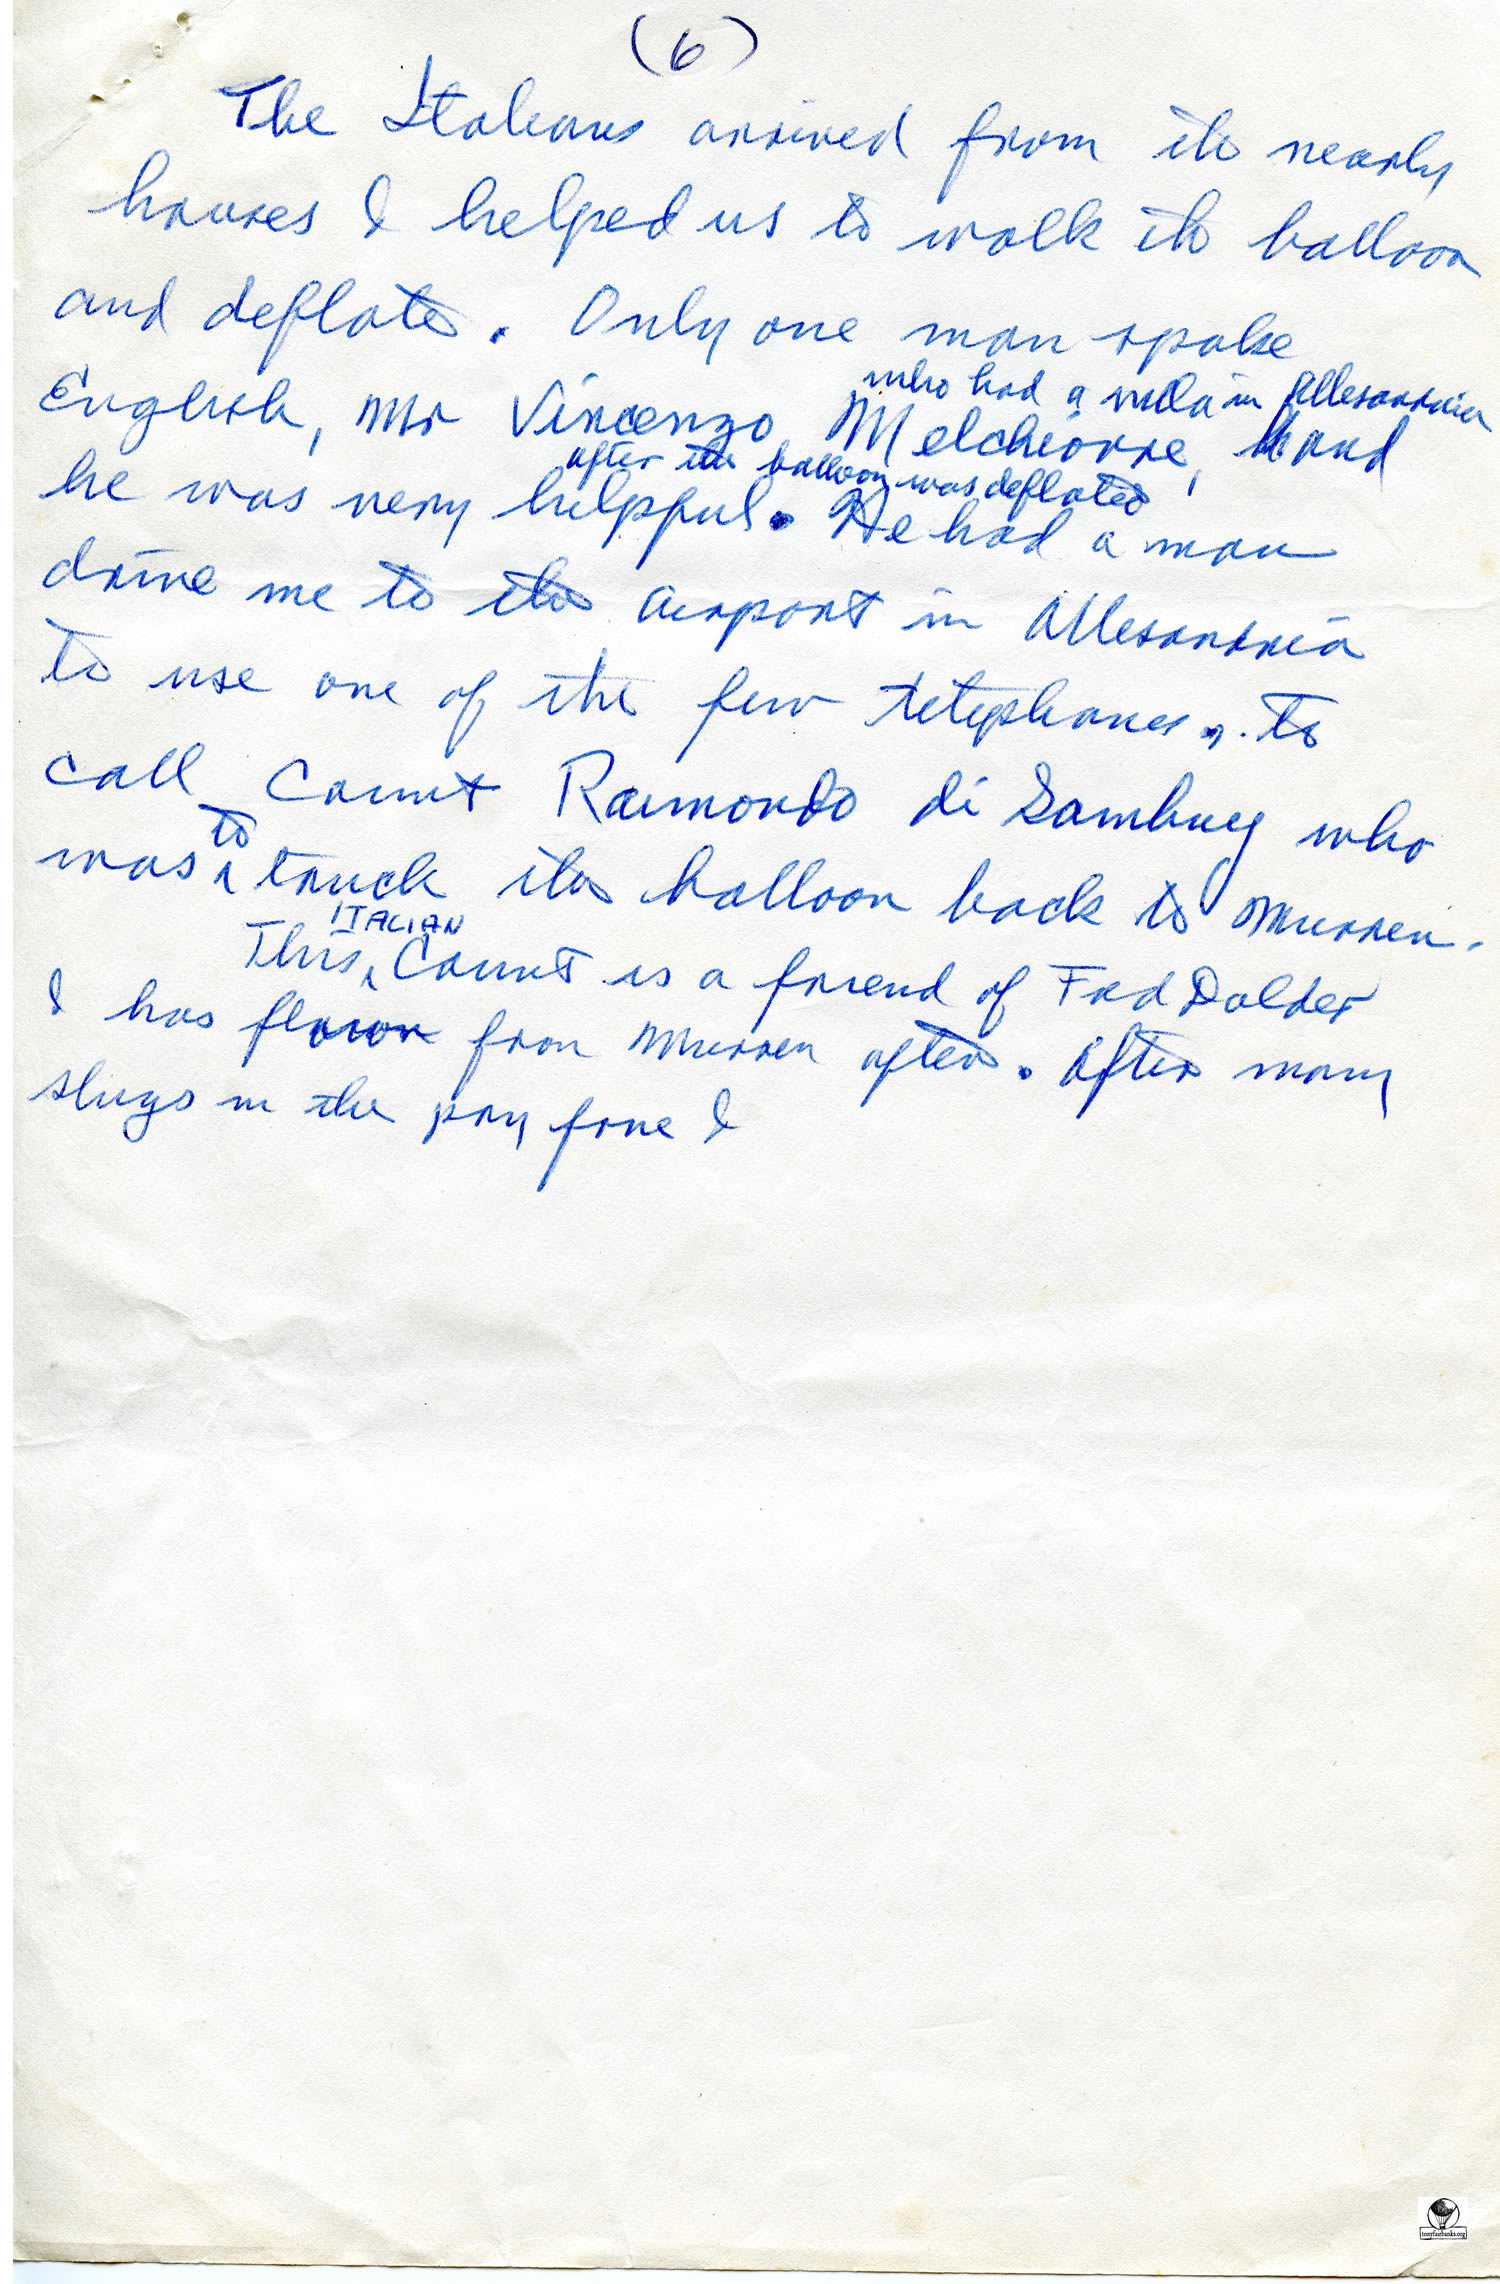 (6)
The Italians arrived from the nearly
houses & helped us to walk the balloon
and deflate. Only one man spoke
who had a villa in Allesandria
English, Mr Vincenzo Melchiorre, and
after the balloon was deflated
he was very helpful. He had a man
drive me to the airport in Allesandria
to use one of the few telephones, to
call Count Raimondo di Sambuy who
to
was truck the balloon back to Murren.
ITALIAN
This Count is a friend of Fred Dolder
& has flown from Murren often. After many
slugs in the pay fone I
tonyfairbanks.org